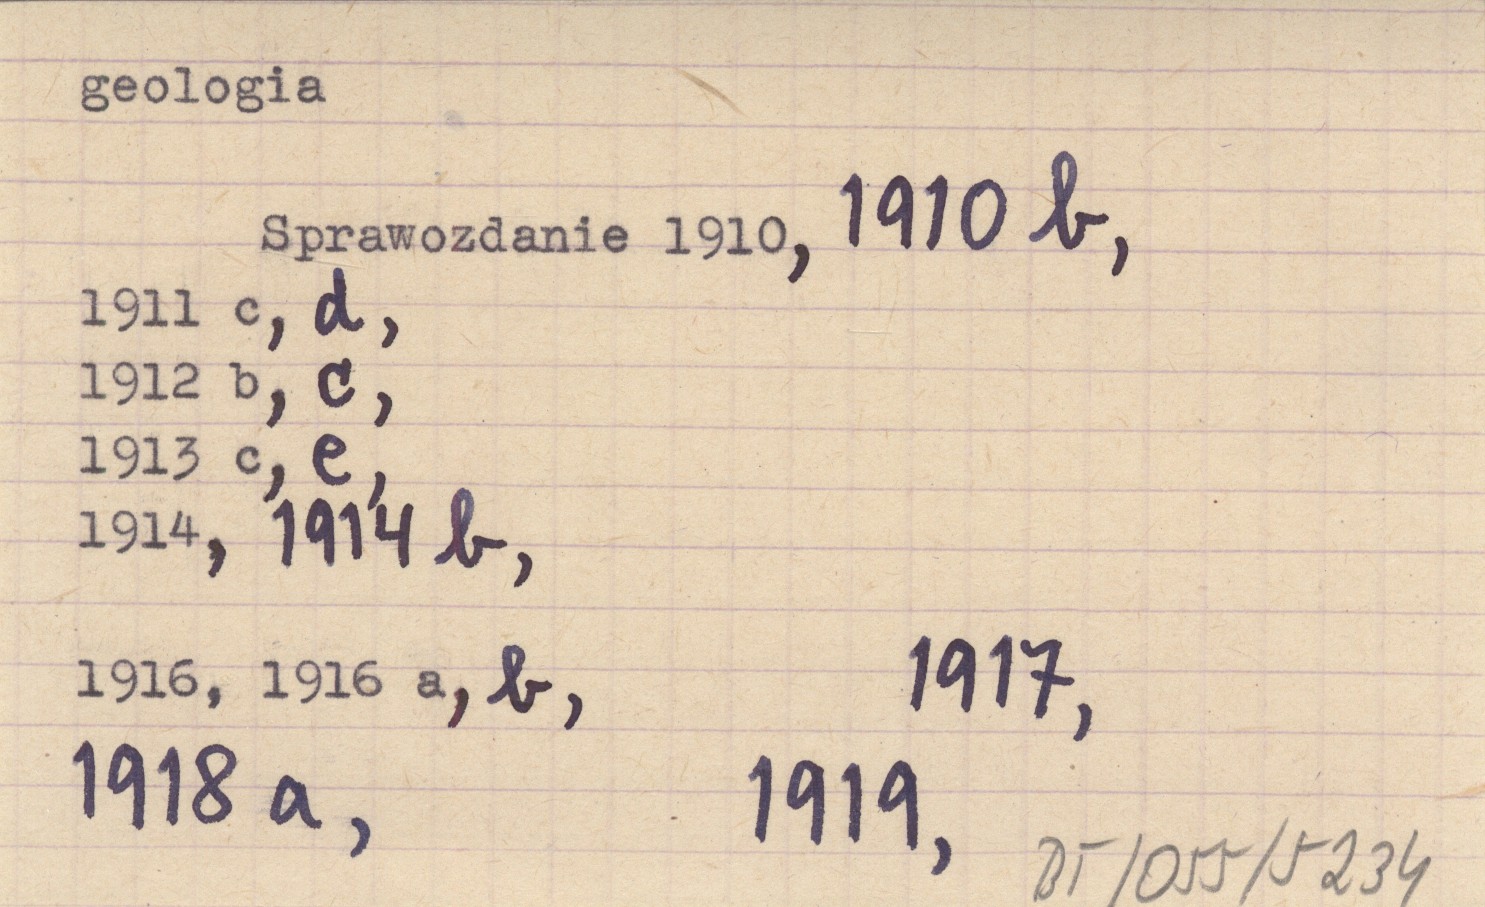 geologia
Sprawozdanie 1910, 1910 b,
1911 c, d,
1912 b, c,
1913 c, e,
1914, 1914 b,
1916, 1916 a, b, 1917,
1918 a, 1919,
BT/055/5234